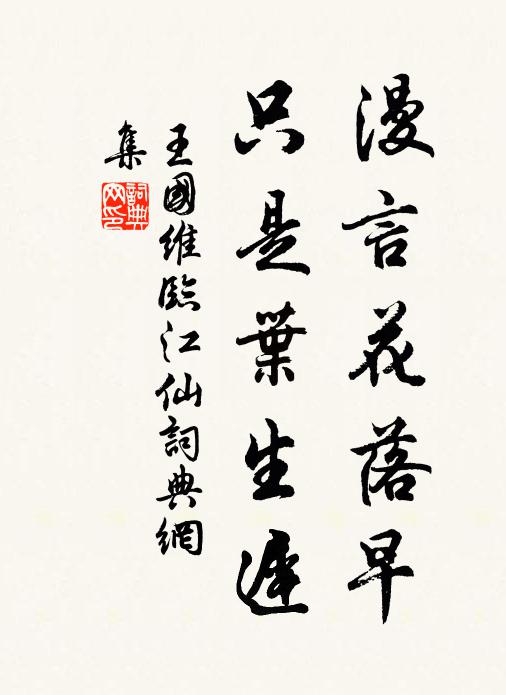 漫言花落早
只是葉生遲
王國維臨江仙詞典網
集
詞典
网印